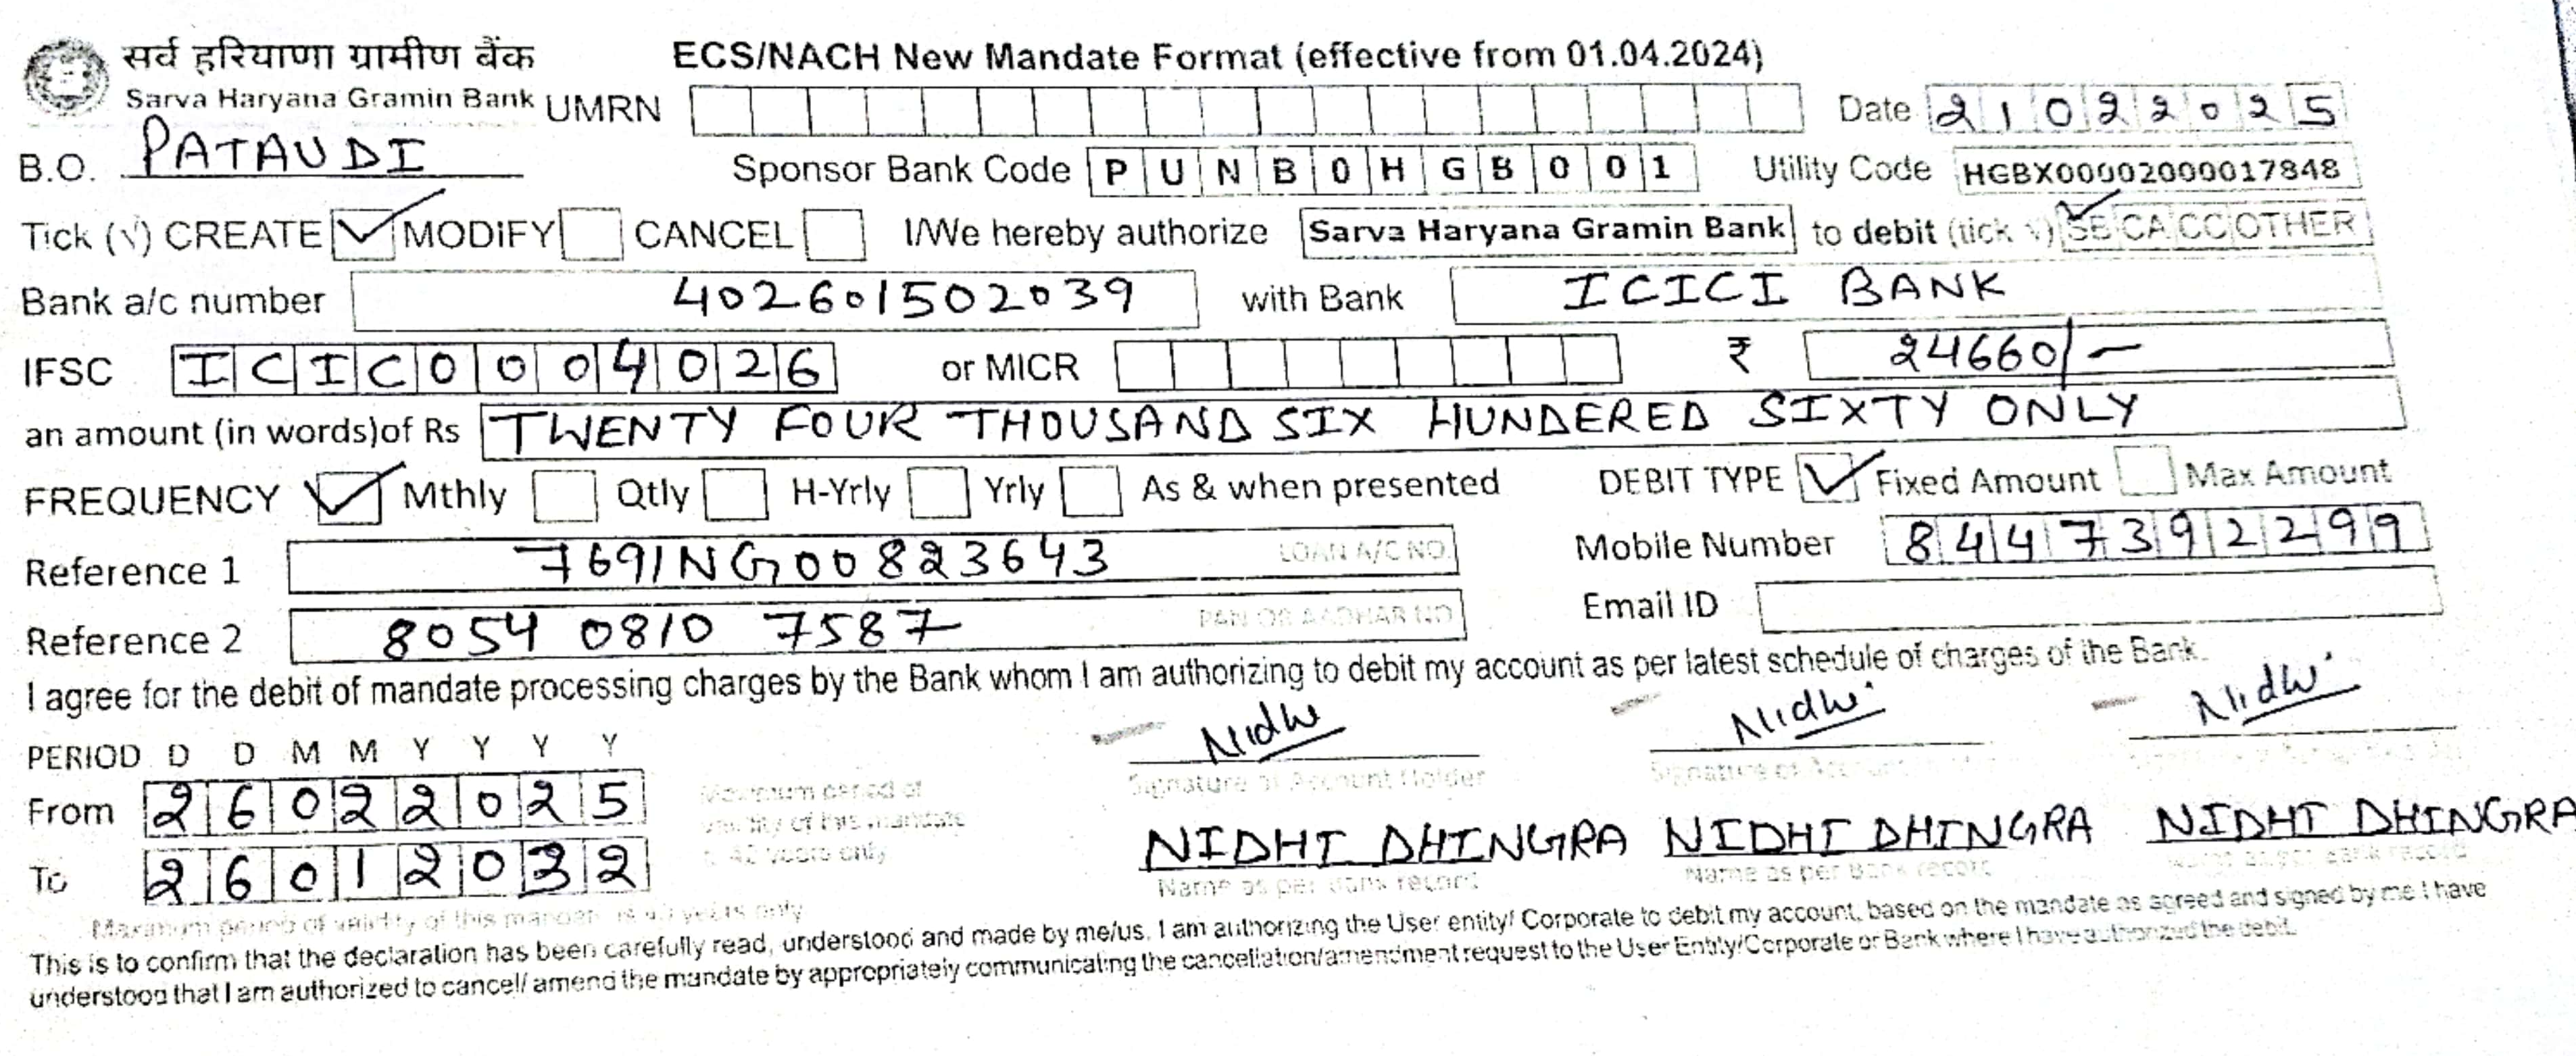 सर्व हरियाणा ग्रामीण बैंक
Sarva Haryana Gramin Bank
ECS/NACH New Mandate Format (effective from 01.04.2024)
UMRN Date 21022025
B.O. PATAUDI Sponsor Bank Code PUNB0HGB001 Utility Code HGBX00002000017848
Tick (√) CREATE MODIFY CANCEL I/We hereby authorize Sarva Haryana Gramin Bank to debit (tick √) SB CA CC OTHER
Bank a/c number 402601502039 with Bank ICICI BANK
IFSC ICIC0004026 or MICR ₹ 24660/-
an amount (in words)of Rs TWENTY FOUR THOUSAND SIX HUNDERED SIXTY ONLY
FREQUENCY Mthly Qtly H-Yrly Yrly As & when presented DEBIT TYPE Fixed Amount Max Amount
Reference 1 769ING00823643 LOAN A/C NO. Mobile Number 8447392299
Reference 2 8054 0810 7587 PAN OR AADHAR NO Email ID
I agree for the debit of mandate processing charges by the Bank whom I am authorizing to debit my account as per latest schedule of charges of the Bank.
Nidhi Nidhi Nidhi
PERIOD D D M M Y Y Y Y
Signature of Account Holder
From 26022025
Maximum period of validity of this mandate
NIDHI DHINGRA NIDHI DHINGRA NIDHI DHINGRA
To 26012032
years only
Name as per bank record Name as per Bank record bank record
Maximum period of validity of this mandate is years only
This is to confirm that the declaration has been carefully read, understood and made by me/us. I am authorizing the User entity/ Corporate to debit my account, based on the mandate as agreed and signed by me I have
understood that I am authorized to cancel/ amend the mandate by appropriately communicating the cancellation/amendment request to the User Entity/Corporate or Bank where I have authorized the debit.